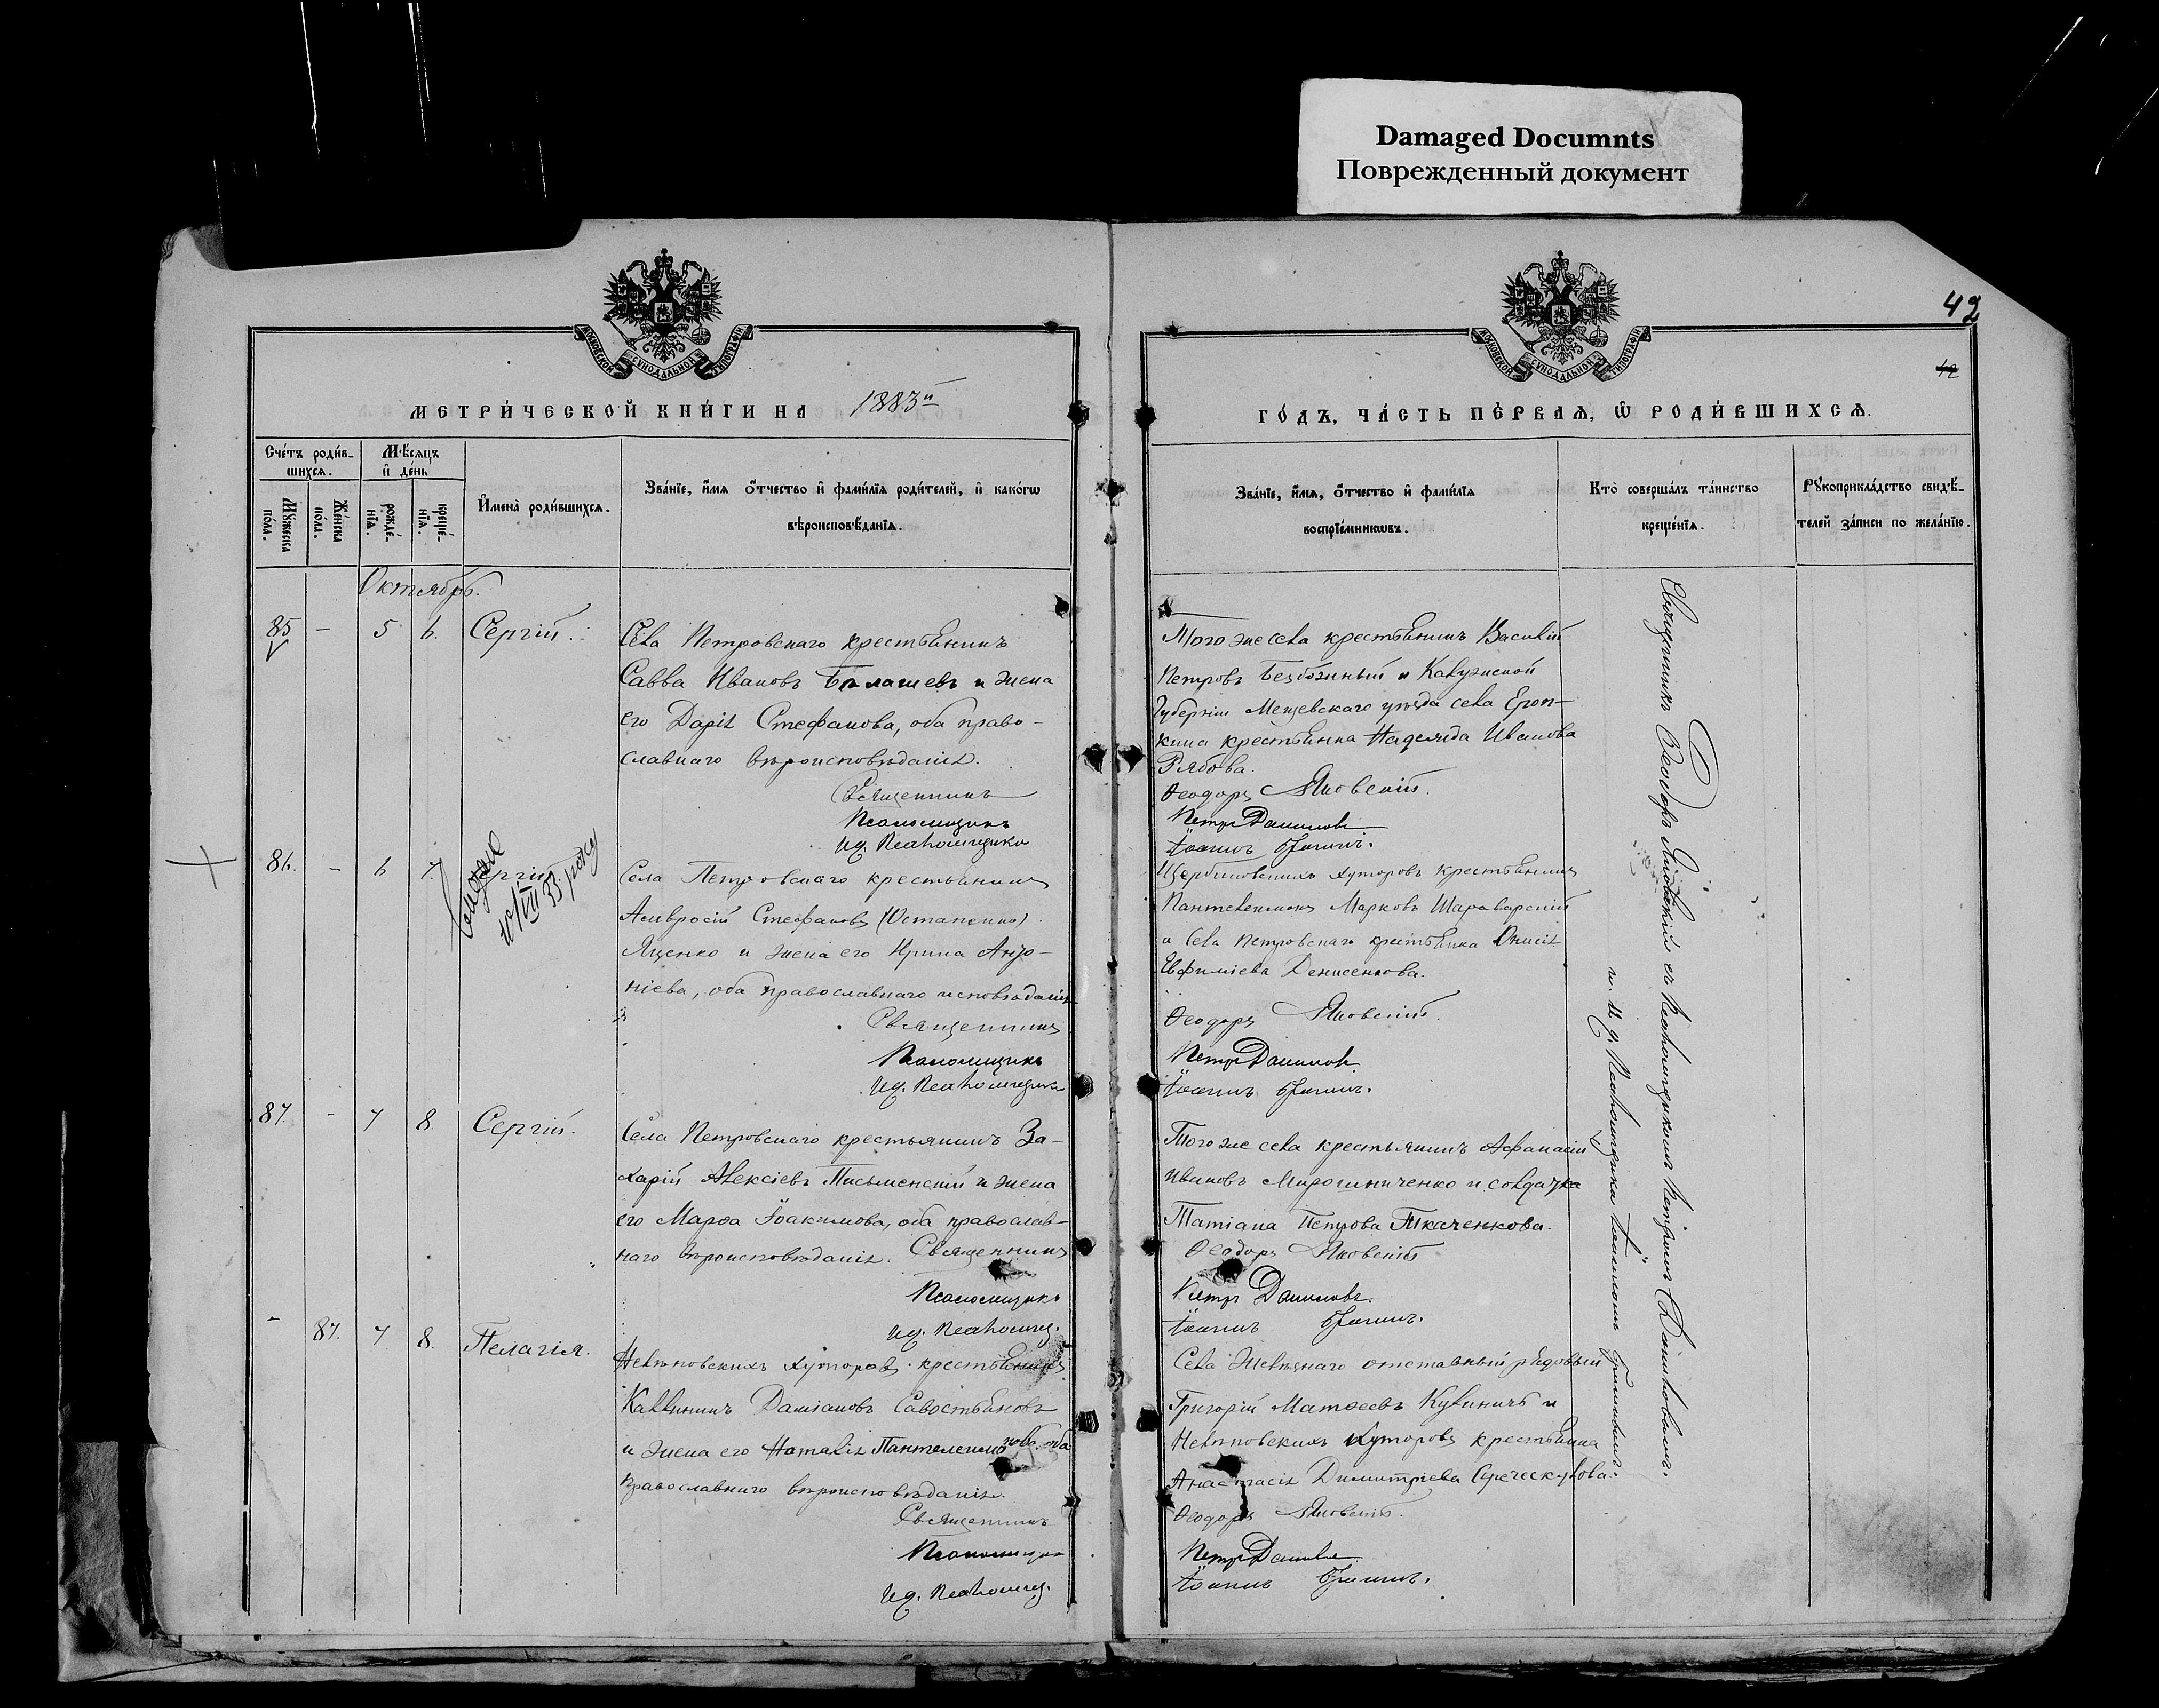 Damaged Documnts
Поврежденный документ
МОСКОВСКОЙ СУНОДАЛЬНОЙ ТИПОГРАФІИ
МОСКОВСКОЙ СУНОДАЛЬНОЙ ТИПОГРАФІИ
42
42
МЕТРИ́ЧЕСКОЙ КНИ́ГИ НА 1883й
ГО́ДЪ, ЧА́СТЬ ПЕ́РВАЯ, Ѿ РОДИ́ВШИХСЯ.
Сче́тъ роди́в-
шихся.
Мѣсяцъ
и҆ де́нь
Мꙋ́жеска
по́ла.
Же́нска
по́ла.
рожде́-
нїѧ.
креще́-
нїѧ.
И҆мена̀ роди́вшихся.
Зва́нїе, и҆́мя ѻ҆́тчество и҆ фамилїѧ роди́телей, и҆ како́гѡ
вѣроисповѣ́данїѧ.
Зва́нїе, и҆́мя, ѻ҆́тчество и҆ фами́лїѧ
воспрїе́мникѡвъ.
Кто̀ соверша́лъ та́инство
креще́нїѧ.
Рꙋкоприкла́дство свидѣ́-
телей за́писи по жела́нїю.
Октябрь.
85 - 5 6. Сергій.
Села Петровскаго крестьянинъ
Савва Ивановъ Балашевъ и жена
его Дарія Стефанова, оба право-
славнаго вѣроисповѣданія.
Священникъ
Псаломщикъ
Ид. Псаломщика
Того же села крестьянинъ Василій
Петровъ Безбожный и Калужской
Губерніи Мещевскаго уѣзда села Ероп-
кина крестьянка Надежда Иванова
Рябова.
Ѳеодоръ Яновскій.
Петръ Даниловъ
Іоаннъ
86. - 6 7. Сергій
10/VIII 33 року
Села Петровскаго крестьянинъ
Амвросій Стефановъ (Остапенко)
Яценко и жена его Ирина Андро-
ніева, оба православнаго исповѣданія
Священникъ
Псаломщикъ
Ид. Псаломщика
Щербиновскихъ хуторовъ крестьянинъ
Пантелеимонъ Марковъ Шараварскій
и села Петровскаго крестьянка Анисія
Евфиміева Денисенкова.
Ѳеодоръ Яновскій.
Петръ Даниловъ
Іоаннъ
87. - 7 8. Сергій.
Села Петровскаго крестьянинъ За-
харій Алексіевъ Письменскій и жена
его Марѳа Іоакимова, оба православ-
наго вѣроисповѣданія. Священникъ
Псаломщикъ
Ид. Псаломщ.
Того же села крестьянинъ Аѳанасій
Ивановъ Мирошниченко и солдатка
Татіана Петрова Ткаченкова.
Ѳеодоръ Яновскій
Петръ Даниловъ.
Іоаннъ
- 87. 7 8. Пелагія.
Нелѣповскихъ хуторовъ крестьянинъ
Каллиникъ Даміановъ Савостьяновъ
и жена его Наталія Пантелеимонова, оба
православнаго вѣроисповѣданія.
Священникъ
Псаломщикъ
Ид. Псаломщ.
Села отставный рядовый
Григорій Матѳеевъ Кулиничъ и
Нелѣповскихъ хуторовъ крестьянка
Анастасія Димитріева
Ѳеодоръ Яновскій.
Петръ Даниловъ
Іоаннъ
Священникъ Ѳеодоръ Яновскій съ Псаломщикомъ Петромъ Даниловымъ.
и И. д. Псаломщика Іоанномъ